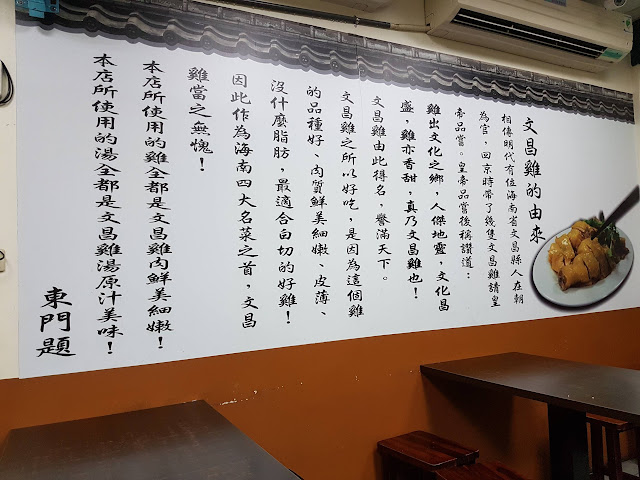 文昌雞的由來
相傳明代有位海南省文昌縣人在朝
為官，回京時帶了幾隻文昌雞請皇
帝品嘗。皇帝品嘗後稱讚道：
雞出文化之鄉，人傑地靈，文化昌
盛，雞亦香甜，真乃文昌雞也！
文昌雞由此得名，譽滿天下。
文昌雞之所以好吃，是因為這個雞
的品種好、肉質鮮美細嫩、皮薄、
沒什麼脂肪，最適合白切的好雞！
因此作為海南四大名菜之首，文昌
雞當之無愧！
本店所使用的雞全都是文昌雞肉鮮美細嫩！
本店所使用的湯全都是文昌雞湯原汁美味！
東門題